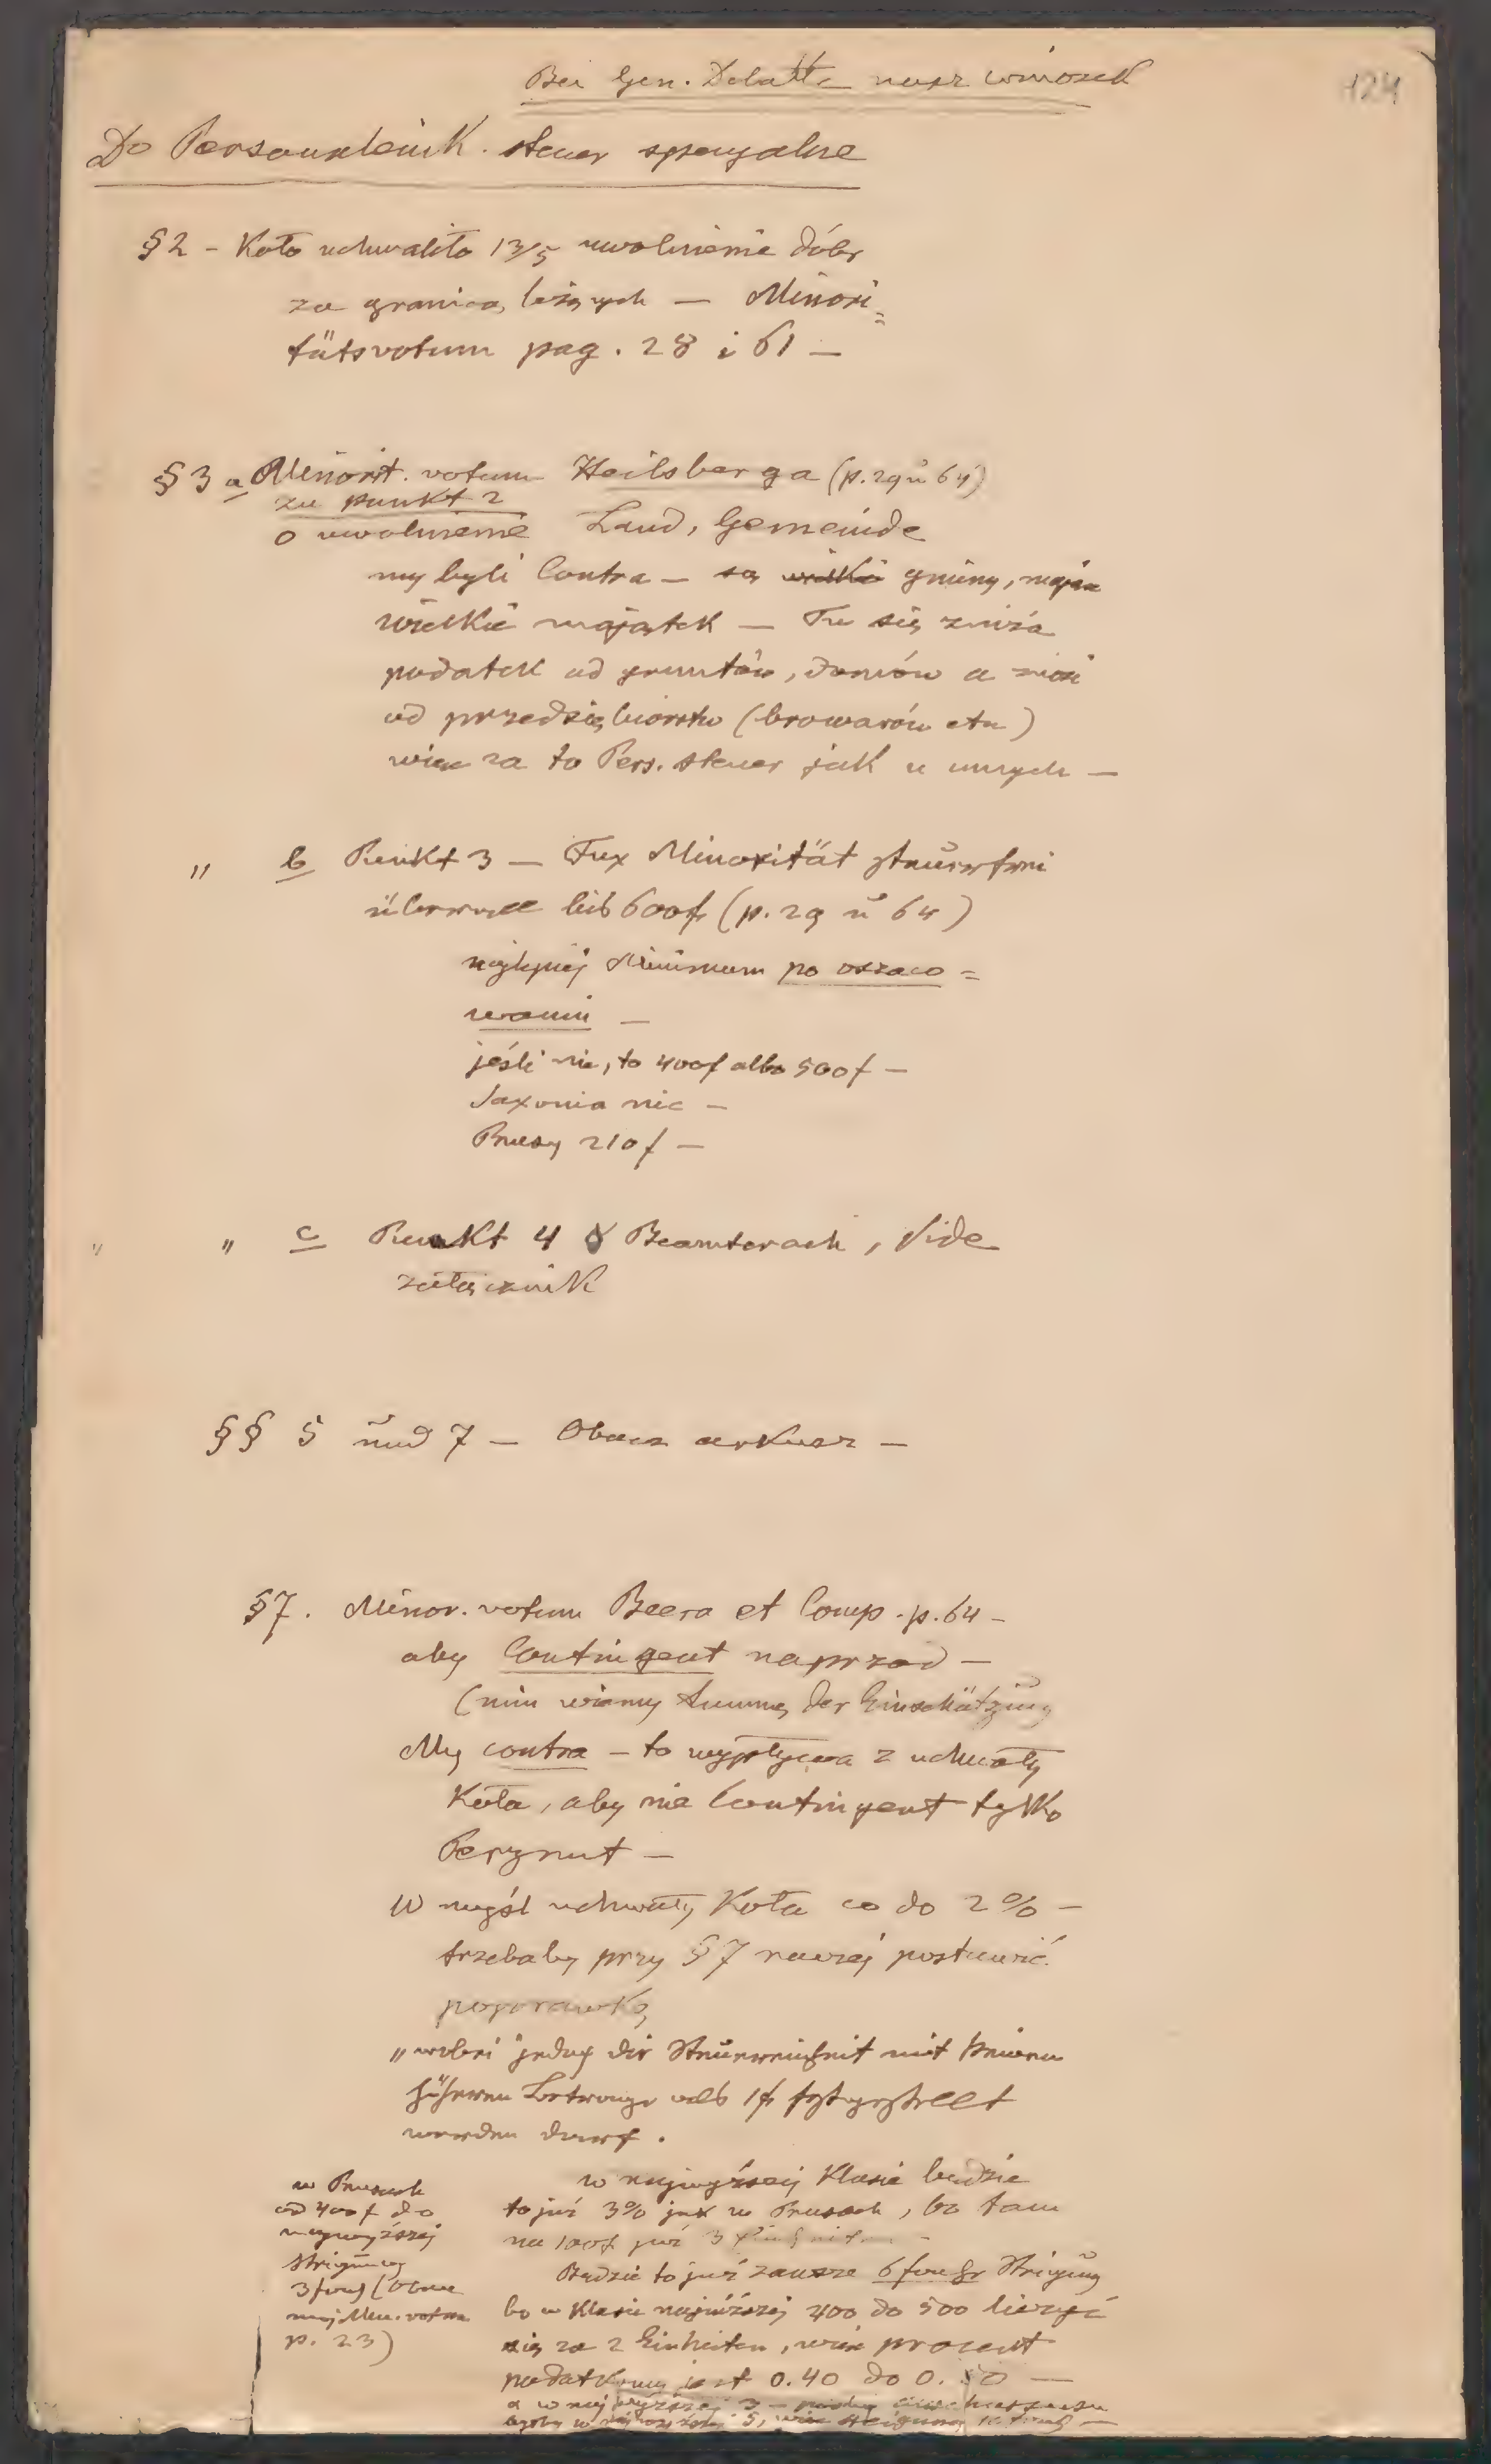 Bei Gen. Debatte nasz wniosek
124
Do Personaleink. steuer specyalne
§ 2 - Koło uchwaliło 13/5 uwolnienie dóbr
za granicą leżących — Minori=
tätsvotum pag. 28 i 61 —
§ 3 a Minorit. votum Heilsberga (p. 29 u 64)
zu punkt 2
o uwolnienie Land, Gemeinde
my byli Contra — są wielkie gminy, mają
wielkie majątek — Tu się zniża
podatek od gruntów, domów a
od przedsiębiorstw (browarów etc)
więc za to Pers. steuer jak u innych —
" b Punkt 3 — Fux Minorität steuerfrei
überall bis 600 f (p. 29 u 64)
najlepiej Minimum po oszaco=
waniu —
jeśli nie, to 400 f albo 500 f —
Saxonia nic —
Prusy 210 f —
" " c Punkt 4 o Beamterach, Vide
załącznik
§§ 5 und 7 — Obacz arkusz —
§ 7. Minor. votum Beera et Comp. p. 64 —
aby Contingent naprzod —
(nim wiemy summę der Einschätzung
My contra — to wypływa z uchwały
Koła, aby nie Contingent tylko
Percynut —
W myśl uchwały Koła co do 2% —
trzebaby przy § 7 raczej postawić
poprawkę
„wobei jedoch die Steuereinheit mit keinem
höheren Betrage als 1 f festgestellt
werden darf.
w najwyższej Klasie będzie
to już 3% jak w Prusach, bo tam
na 100 f już 3
Będzie to już zawsze 6 fache Steigung
bo w Klasie najniższej 400 do 500 liczyć
się za 2 Einheiten, więc procent
podatkowy jest 0.40 do 0.50 —
a w najwyższej 3 —
w Prusach
od 400 f do
najwyższej
Steigung
3 fach (Obacz
mój Min. votum
p. 23)